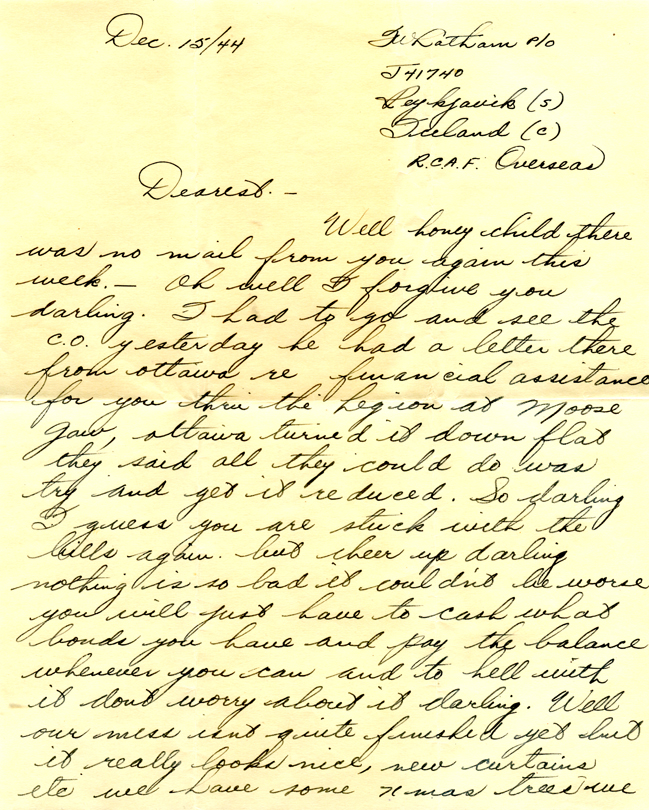 Dec. 15/44
Latham P/O
J41740
Reykjavik (S)
Iceland (C)
R.C.A.F. Overseas
Dearest. —
Well honey child there
was no mail from you again this
week. — Oh well I forgive you
darling. I had to go and see the
C.O. yesterday he had a letter there
from ottawa re financial assistance
for you thru the Legion at Moose
Jaw, ottawa turned it down flat
they said all they could do was
try and get it reduced. So darling
I guess you are stuck with the
bills again. but cheer up darling
nothing is so bad it couldn't be worse
you will just have to cash what
bonds you have and pay the balance
whenever you can and to hell with
it dont worry about it darling. Well
our mess isnt quite finished yet but
it really looks nice, new curtains
etc we have some xmas trees we